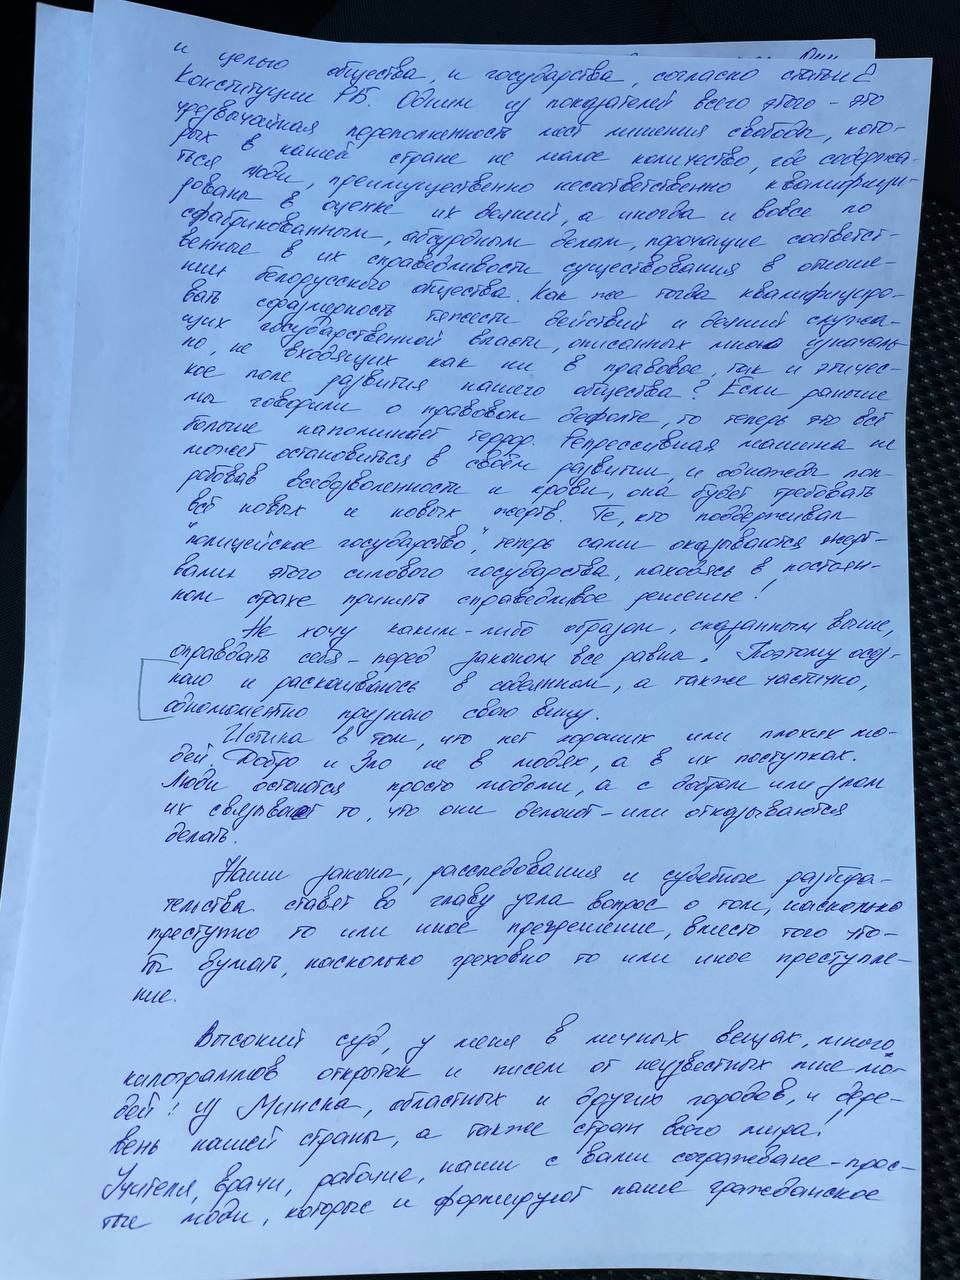 и целью общества, и государства, согласно статьи 2
Конституции РБ. Одним из показателей всего этого - это
чрезвычайная переполненность мест лишения свободы, кото-
рых в нашей стране не малое количество, где содержа-
ться люди, преимущественно несоответственно квалифици-
рованы в оценке их деяний, а иногда и вовсе по
сфабрикованным, абсурдным делам, порочащие соответст-
венные в их справедливости существования в отноше-
нии белорусского общества. Как же тогда квалифициро-
вать соразмерность тяжести действий и деяний служа-
щих государственной власти, описанных мною изначаль
но, не входящих как ни в правовое, так и этичес-
кое поле развития нашего общества? Если раньше
мы говорили о правовом дефолте, то теперь это всё
больше напоминает террор. Репрессивная машина не
может остановиться в своём развитии, и однажды поп-
робовав вседозволенности и крови, она будет требовать
всё новых и новых жертв. Те, кто поддерживал
"полицейское государство", теперь сами оказываются жерт-
вами этого силового государства, находясь в постоян-
ном страхе принять справедливое решение!
Не хочу каким-либо образом, сказанным выше,
оправдать себя - перед законом все равны! Поэтому осоз-
наю и раскаиваюсь в содеянном, а также частично,
одномоментно признаю свою вину.
Истина в том, что нет хороших или плохих лю-
дей. Добро и Зло не в людях, а в их поступках.
Люди остаются просто людьми, а с добром или злом
их связывает то, что они делают - или отказываются
делать.
Наши законы, расследования и судебные разбира-
тельства ставят во главу угла вопрос о том, насколько
преступно то или иное прегрешение, вместо того что-
бы думать, насколько греховно то или иное преступле-
ние.
Высокий суд, у меня в личных вещах, много
килограммов открыток и писем от неизвестных мне лю-
дей! из Минска, областных и других городов, и дере-
вень нашей страны, а также стран всего мира!
Учителя, врачи, рабочие, наши с вами сограждане - прос-
тые люди, которые и формируют наше гражданское